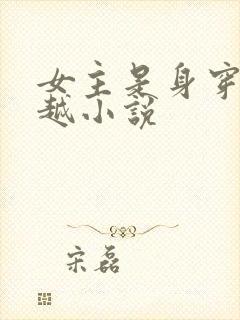 女主是身穿
越小說
宋磊